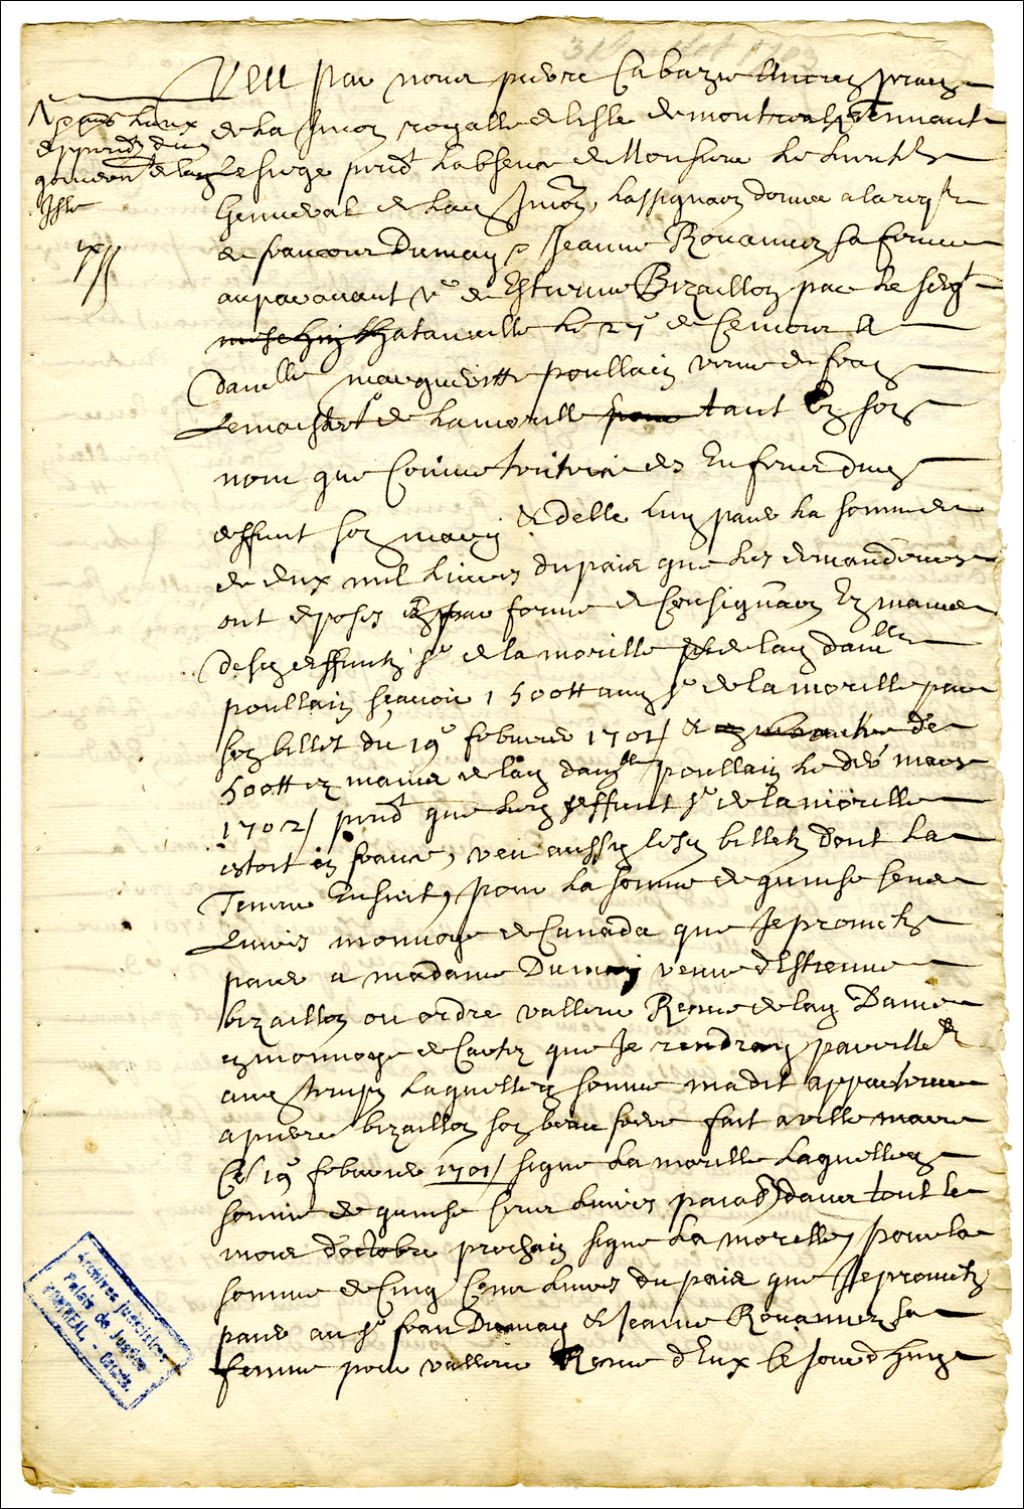 31 Juillet 1703
Veu par nous pierre Cabazie Ancien pratic
de la Juron royalle de lisle de montreal, Tennant
Le siege pend.t Labsence de Monsieur Le Lieuten.t
General de lad Juron, Lassignaon donnee a la req.te
de francois Dumay & Jeanne Rouannez sa femme
auparavant v.e de Estienne Bizaillon par le serg.t
le 27.e de Ce mois A
Dam.lle margueritte poullain veuve de feu
Lemaistre s.r de Lamorille tant En son
nom que Comme tutrice des Enfens dud
deffunt son mary & delle luy paier la somme
de deux mil livres du pais que les demandeurs
ont deposes par forme de Consignaon En mains
desd deffuntz s.r de la morille & de lad dam.lle
poullain scavoir 1500tt aud s.r de la morille par
son billet du 19.e febvrier 1701 / &
500tt en mains de lad dam.lle poullain le mars
1702 / pend.t que led deffunt s.r de la morille
estoit en france, veu aussy lesd billetz dont La
Teneur Ensuit, pour La somme de quinse Cens
Livres monnoye de Canada que Je prometz
paier a madame Dumay veuve dEstienne
bizaillon ou ordre valleur Receue de lad Dame
en monnoye de Carte que Je rendray pareille
avec temps Laquelle somme ma dit appartenir
a pierre bizaillon son beau frere fait a ville marie
Ce 19.e febvrier 1701 / signe La morille Laquelle
somme de quinse Cens livres paiable dans tout le
mois doctobre prochain signe La morille, pour la
somme de Cinq Cens livres du pais que Je prometz
paier au s.r fran Dumay & Jeanne Rouannez sa
femme pour valleur Receue dEux le Jour dhuy
Isle
Archives judiciaires
Palais de Justice
MONTREAL, - QUEBEC.